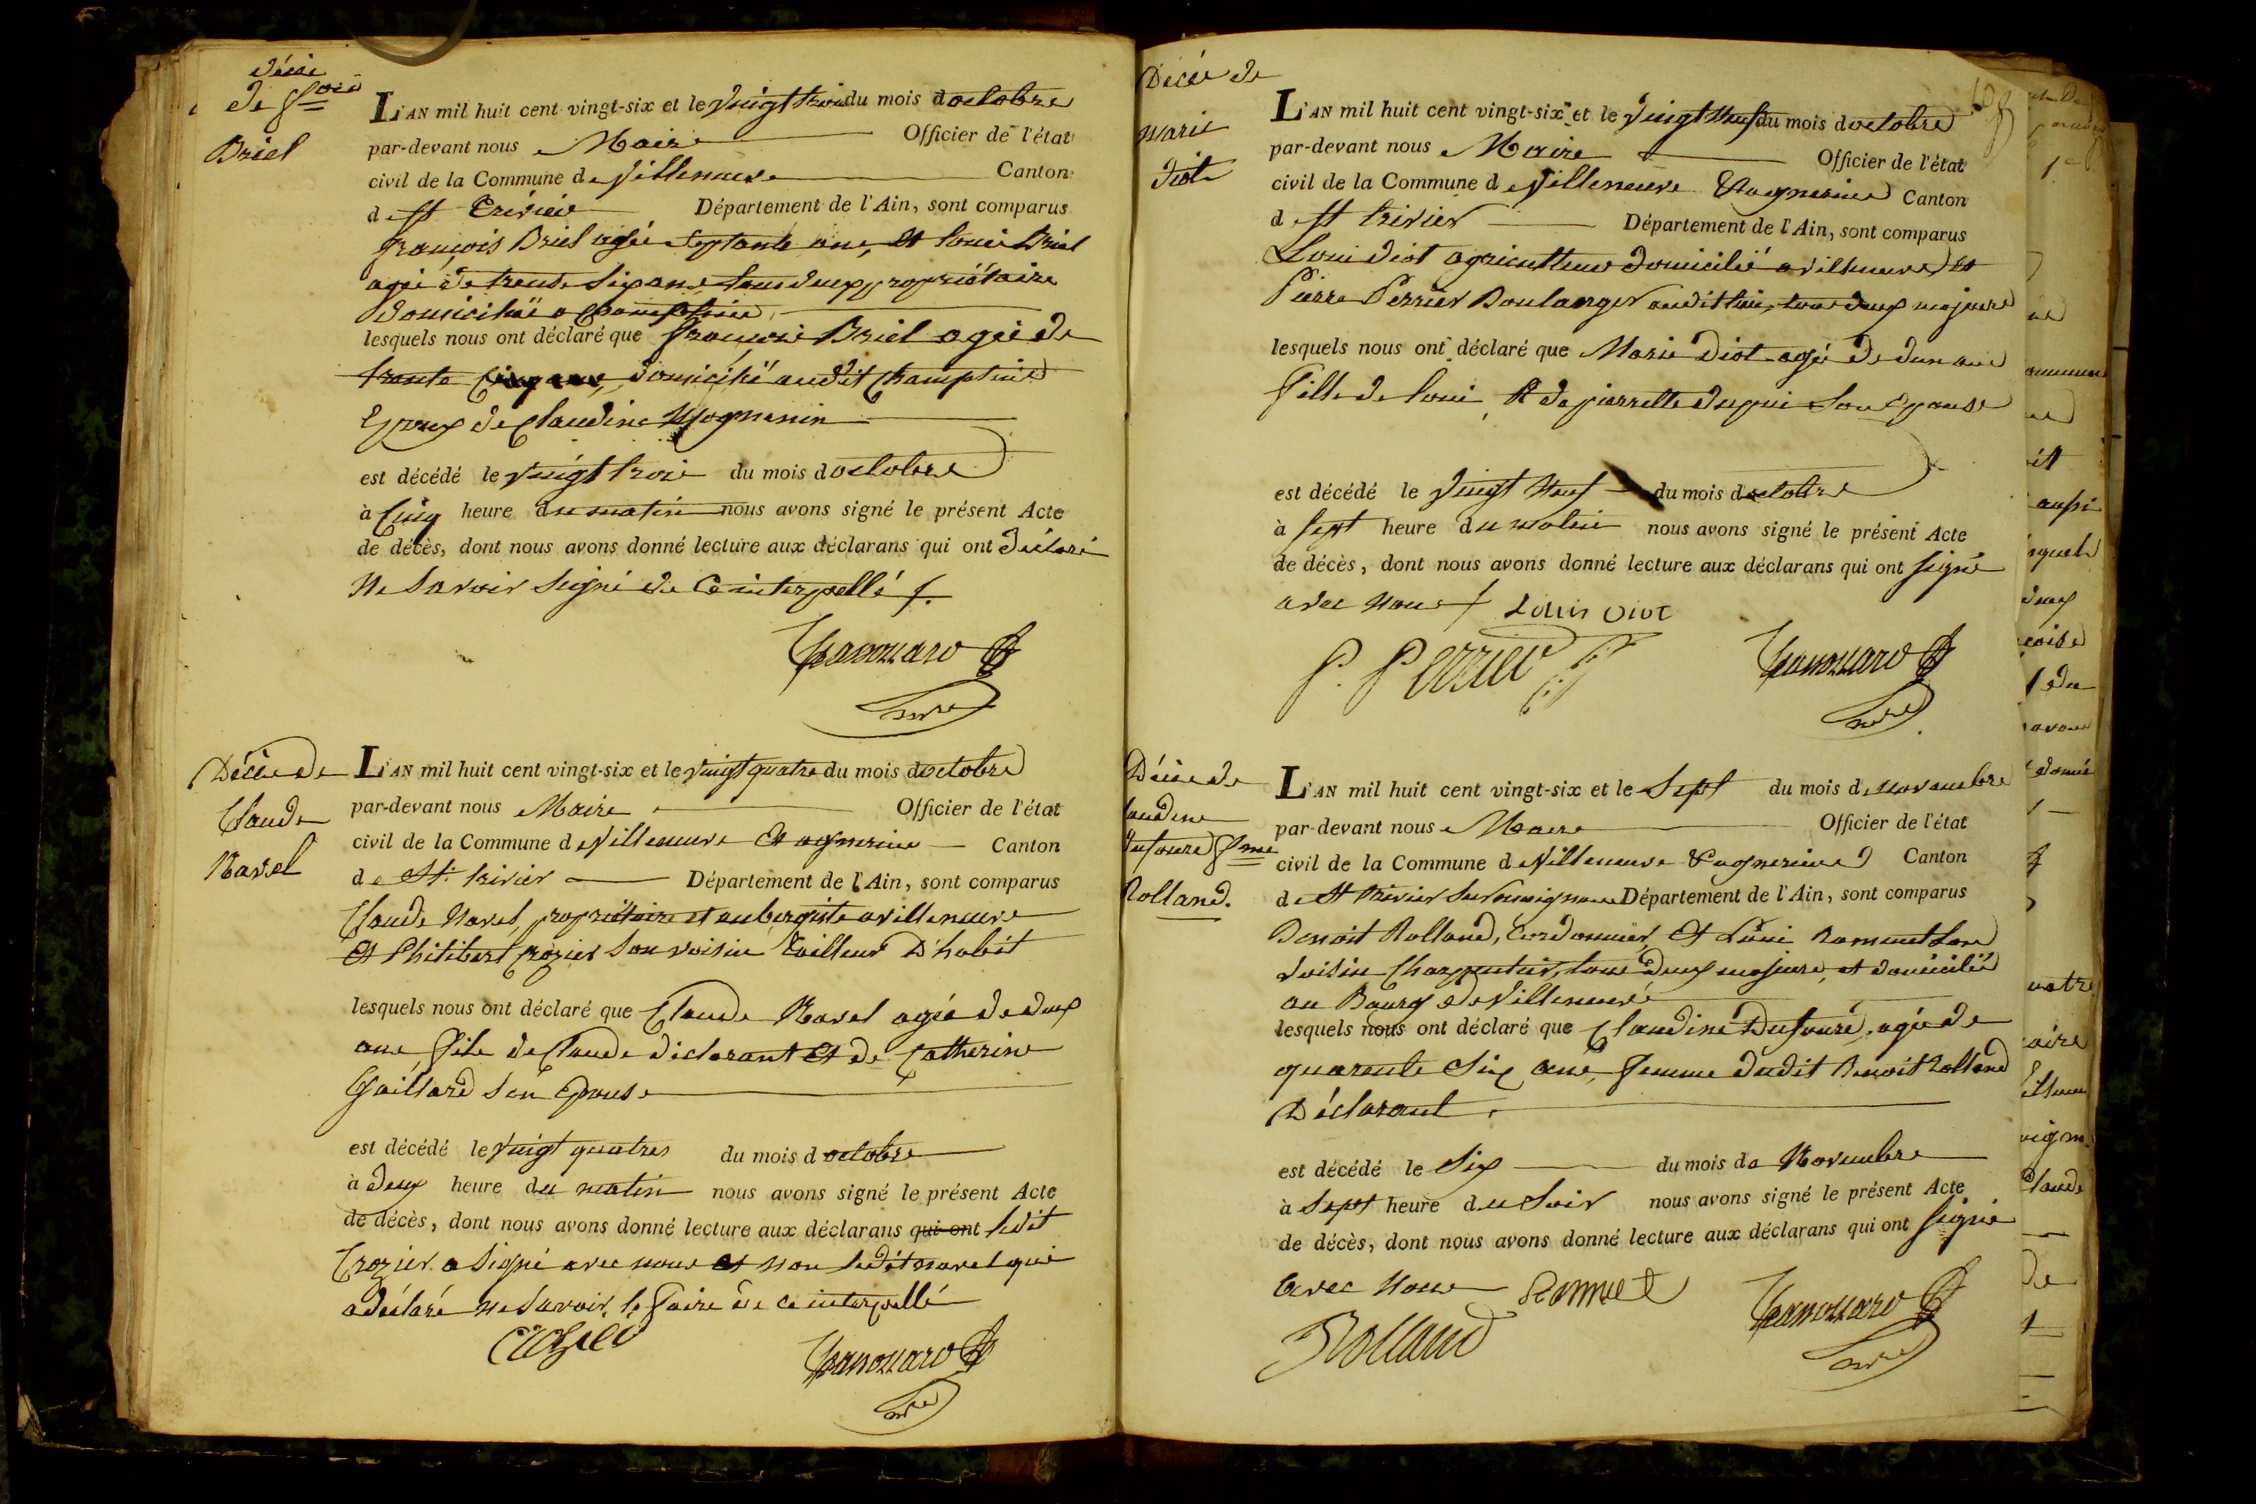 décès
de f.ois
Briel
L'AN mil huit cent vingt-six et le vingt trois du mois doctobre
par-devant nous Maire Officier de l'état
civil de la Commune de Villeneuve Canton
de St Trivier Département de l'Ain, sont comparus
françois Briel agée septante ans, et Louis Briel
agée de trente six ans tous deux propriétaire
domicilié a Champteins
lesquels nous ont déclaré que françois Briel agée de
trante cinq ans, domicilié audit Champteins
Epoux de Claudine Mognenin
est décédé le vingt trois du mois doctobre
à Cinq heure du matin nous avons signé le présent Acte
de décès, dont nous avons donné lecture aux déclarans qui ont déclaré
Ne Savoir Signé de Ce interpellé
Maire
Décès de
Claude
Navel
L'AN mil huit cent vingt-six et le vingt quatre du mois doctobre
par-devant nous Maire Officier de l'état
civil de la Commune de Villeneuve et agnereins Canton
de St. trivier Département de l'Ain, sont comparus
Claude Navel, propriétaire et aubergiste a villeneuve
Et Philibert Crozier Son voisin Tailleur D'habit
lesquels nous ont déclaré que Claude Navel agée de deux
ans fils de Claude déclarant et de Catherine
Gaillard Son Epouse
est décédé le vingt quatres du mois d octobre
à deux heure du matin nous avons signé le présent Acte
de décès, dont nous avons donné lecture aux déclarans qui ont ledit
Crozier a Signé avec nous et non ledit navel qui
a déclaré ne Savoir le faire de ce interpellé
Crozier
Maire
Décès de
Marie
diot
L'AN mil huit cent vingt-six et le vingt Neuf du mois doctobre
par-devant nous Maire Officier de l'état
civil de la Commune de Villeneuve & agnereins Canton
de St trivier Département de l'Ain, sont comparus
Louis diot agriculteur domicilié a villeneuve et
Pierre Perrier Boulanger audit lieu, tous deux majeurs
lesquels nous ont déclaré que Marie diot agée de deux ans
fille de Louis & de pierrette dupuis Son Epouse
est décédé le vingt Neuf du mois doctobre
à Sept heure du matin nous avons signé le présent Acte
de décès, dont nous avons donné lecture aux déclarans qui ont Signé
avec nous Louis Diot
P. Perrier
Maire
Décès de
Claudine
Dufoure f.me
Rolland.
L'AN mil huit cent vingt-six et le Sept du mois de novembre
par-devant nous Maire Officier de l'état
civil de la Commune de Villeneuve & agnereins Canton
de St trivier Sur moignans Département de l'Ain, sont comparus
Benoit Rolland, Cordonnier, Et Louis Rommet Son
Voisin Charpentier, tous deux majeurs, et domicilié
au Bourg de Villeneuve
lesquels nous ont déclaré que Claudine Dufoure, agée de
quarente Six ans, femme dudit Benoit Rolland
Déclarant
est décédé le Six du mois de Novembre
à Sept heure du Soir nous avons signé le présent Acte
de décès, dont nous avons donné lecture aux déclarans qui ont Signé
avec Nous Rommet
Rolland
Maire